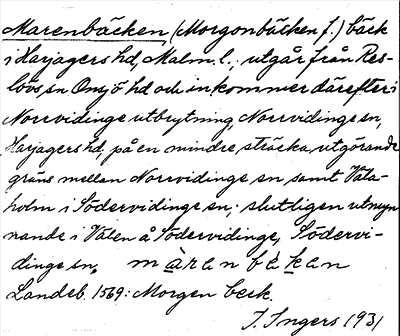 Marenbäcken, (Morgonbäcken f.) bäck
i Harjagers hd, Malm. l., utgår från Res-
lövs sn Onsjö hd och inkommer därefter i
Norrvidinge utbrytning, Norrvidinge sn,
Harjagers hd, på en mindre sträcka utgörande
gräns mellan Norrvidinge sn samt Vala-
holm i Södervidinge sn; slutligen utmyn-
nande i Válen å Södervidinge, Södervi-
dinge sn, maranbäkan
Landeb. 1569: Morgen beck.
I. Ingers 1931